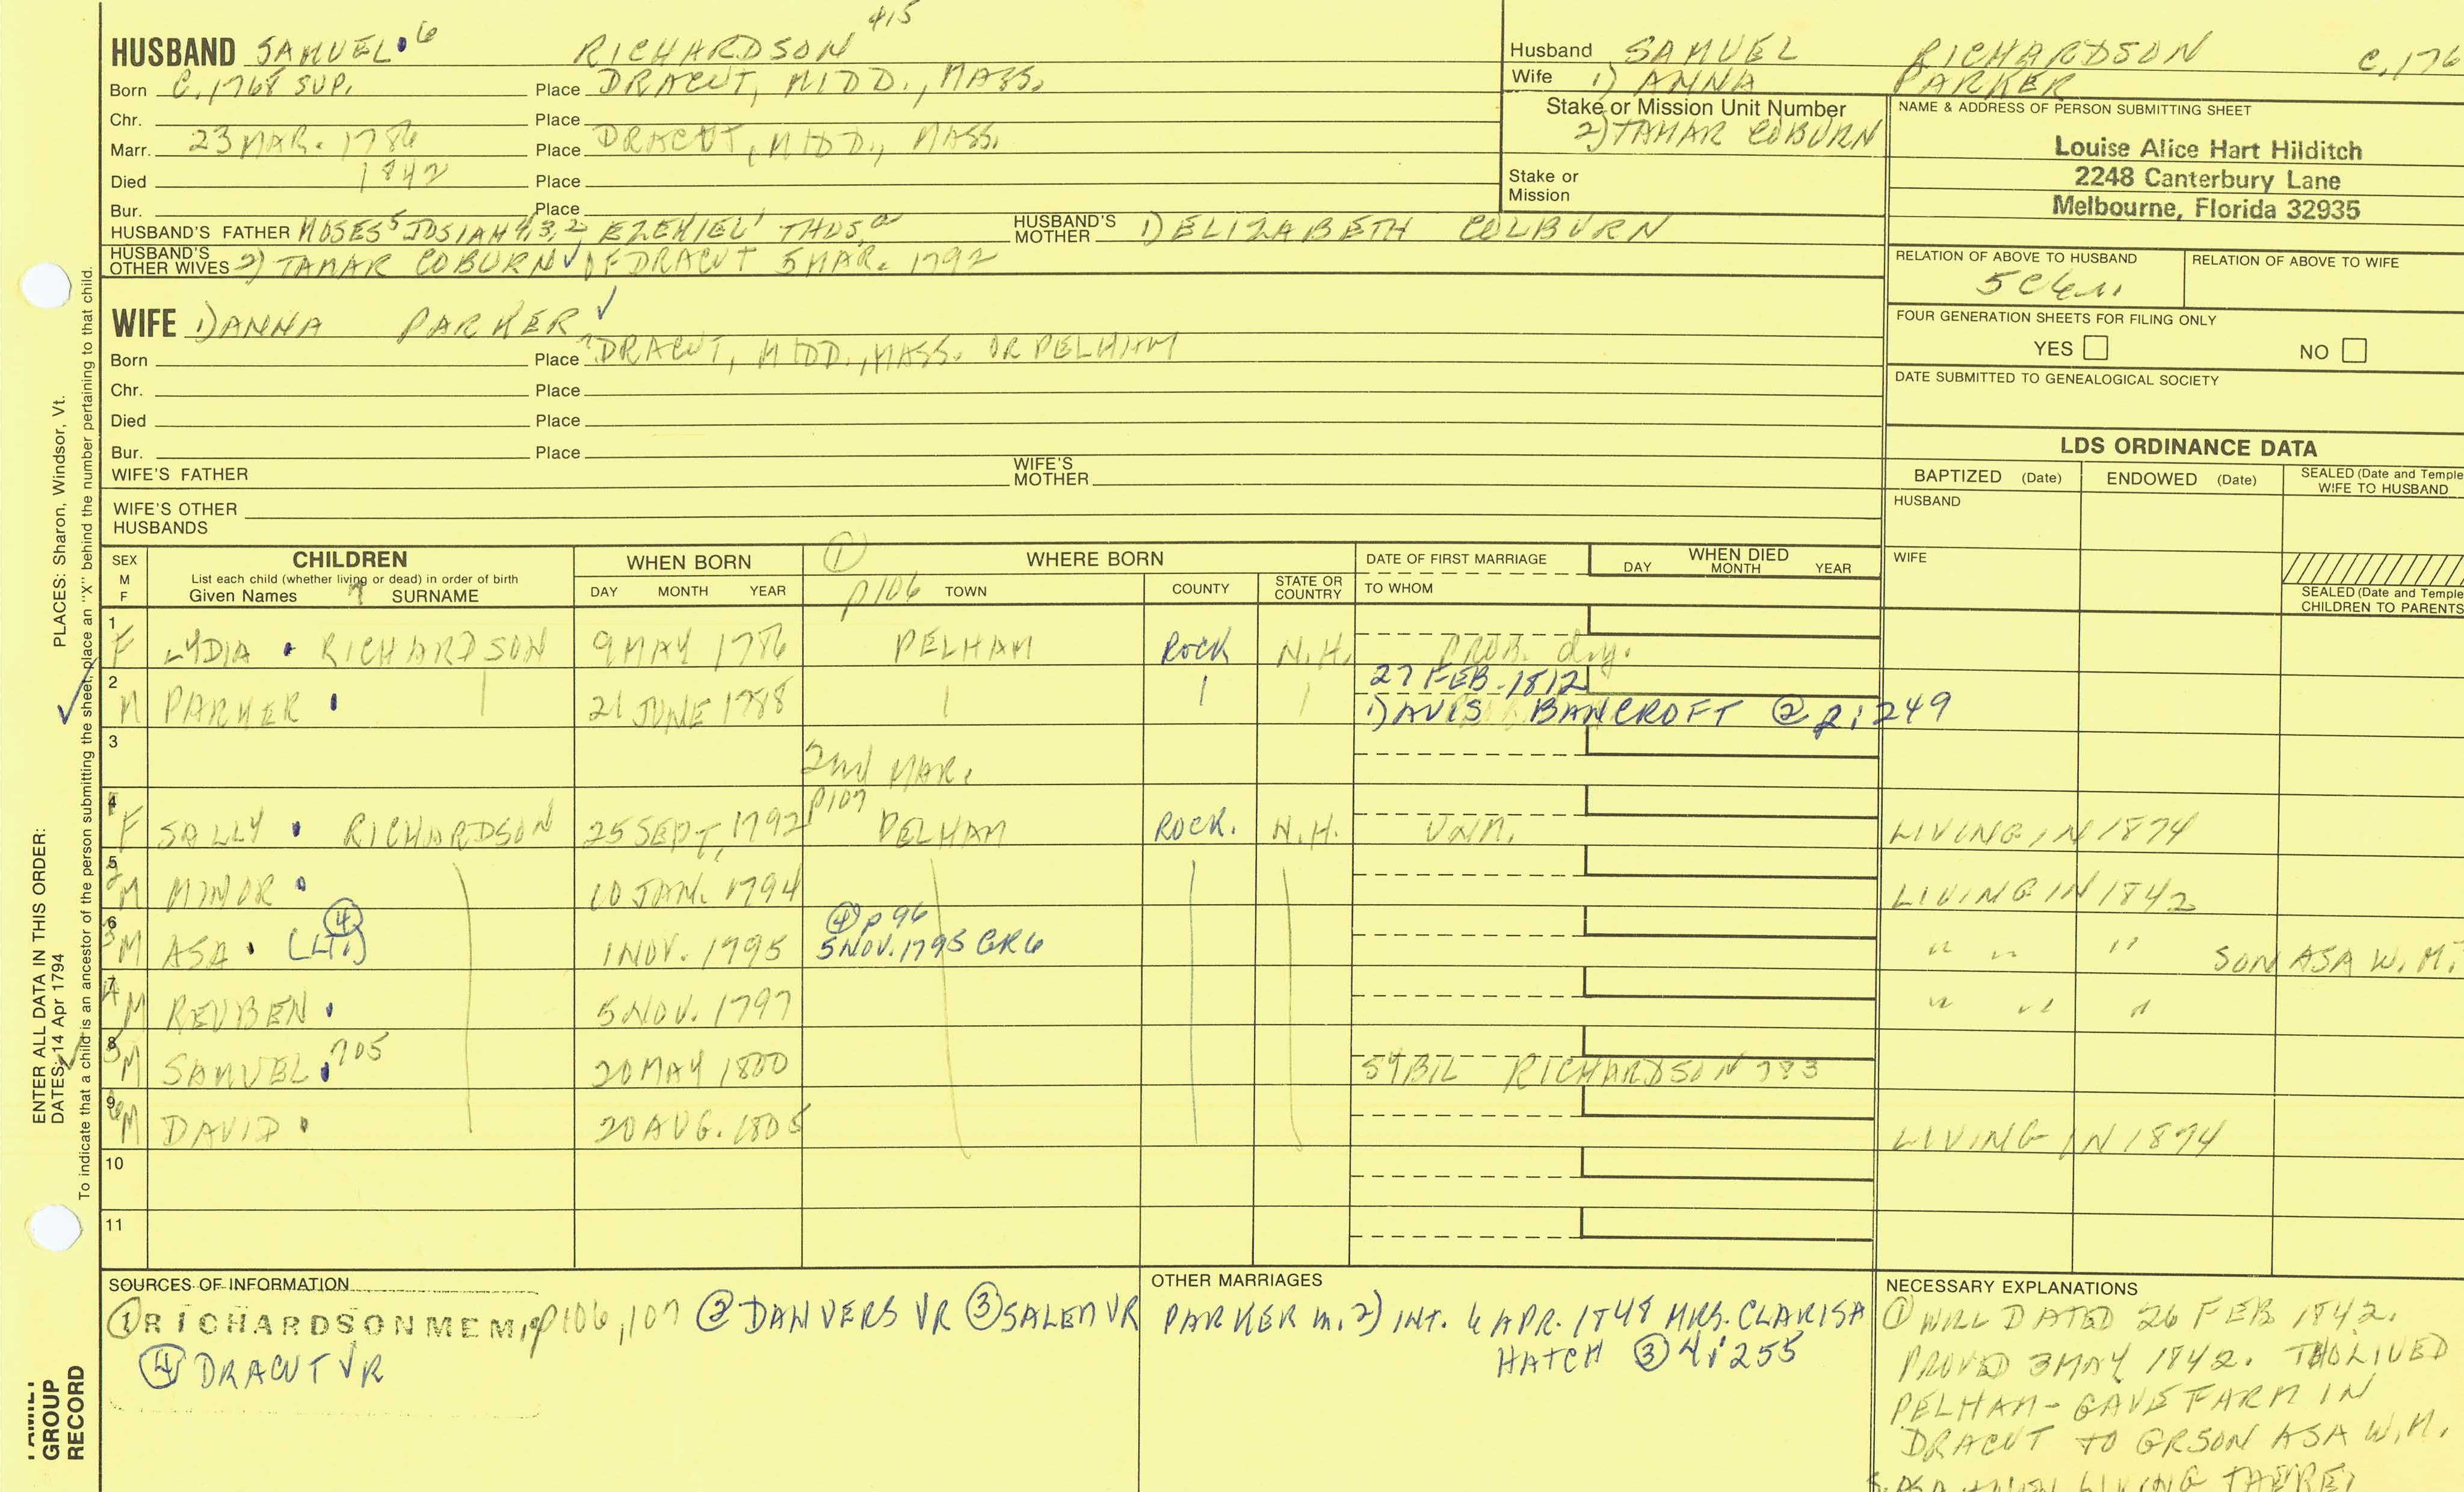 415
HUSBAND SAMUEL 6 RICHARDSON
Born C.1768 SUP. Place DRACUT, MIDD., MASS.
Chr. Place
Marr. 23 MAR. 1786 Place DRACUT, MIDD., MASS.
Died 1842 Place
Bur. Place
HUSBAND'S FATHER MOSES 5 JOSIAH 4,3,2, EZEKIEL 1 THOS. a HUSBAND'S MOTHER 1) ELIZABETH COLBURN
HUSBAND'S OTHER WIVES 2) TAMAR COBURN ✓ OF DRACUT 5 MAR. 1792
WIFE 1) ANNA PARKER ✓
Born Place ? DRACUT, MIDD., MASS. OR PELHAM
Chr. Place
Died Place
Bur. Place
WIFE'S FATHER WIFE'S MOTHER
WIFE'S OTHER HUSBANDS
Husband SAMUEL RICHARDSON C.176
Wife 1) ANNA PARKER
Stake or Mission Unit Number
2) TAMAR COBURN
Stake or Mission
NAME & ADDRESS OF PERSON SUBMITTING SHEET
Louise Alice Hart Hilditch
2248 Canterbury Lane
Melbourne, Florida 32935
RELATION OF ABOVE TO HUSBAND RELATION OF ABOVE TO WIFE
FOUR GENERATION SHEETS FOR FILING ONLY
YES NO
DATE SUBMITTED TO GENEALOGICAL SOCIETY
LDS ORDINANCE DATA
BAPTIZED (Date) ENDOWED (Date) SEALED (Date and Temple
WIFE TO HUSBAND
HUSBAND
WIFE
SEALED (Date and Temple
CHILDREN TO PARENTS
SEX M F CHILDREN WHEN BORN ① WHERE BORN DATE OF FIRST MARRIAGE WHEN DIED
List each child (whether living or dead) in order of birth
Given Names SURNAME DAY MONTH YEAR p106 TOWN COUNTY STATE OR COUNTRY TO WHOM DAY MONTH YEAR
1 F LYDIA RICHARDSON 9 MAY 1786 PELHAM ROCK N.H. PROB. d.y.
27 FEB. 1812
2 M PARKER 21 JUNE 1788 1) AVIS BANCROFT ② 2:249
3 2nd MAR.
p107
4 F SALLY RICHARDSON 25 SEPT, 1792 PELHAM ROCK. N.H. UNM. LIVING IN 1874
5 2 M MINOR 10 JAN. 1794 LIVING IN 1842
④ ④ p 96
6 3 M ASA (LT.) 1 NOV. 1795 5 NOV. 1795 GR6 " " " SON ASA W. M.
7 4 M REUBEN 5 NOV. 1797 " " "
8 5 M SAMUEL 705 20 MAY 1800 SYBIL RICHARDSON 783
9 6 M DAVID 20 AUG. 1805 LIVING IN 1874
10
11
SOURCES OF INFORMATION
① RICHARDSON MEM, p106, 107 ② DANVERS VR ③ SALEM VR
④ DRACUT VR
OTHER MARRIAGES
PARKER m. 2) INT. 6 APR. 1848 MRS. CLARISA
HATCH ③ 4:255
NECESSARY EXPLANATIONS
① WILL DATED 26 FEB 1842.
PROVED 3 MAY 1842. THO LIVED
PELHAM - GAVE FARM IN
DRACUT TO GRSON ASA W. M.
LIVING THERE
PLACES: Sharon, Windsor, Vt.
ENTER ALL DATA IN THIS ORDER:
DATES: 14 Apr 1794
To indicate that a child is an ancestor of the person submitting the sheet, place an "X" behind the number pertaining to that child.
FAMILY GROUP RECORD